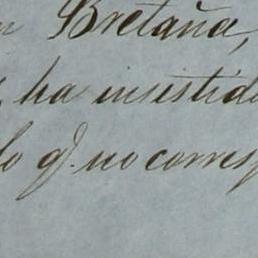 n Bretaña,
ha insistido
lo q. no corresp